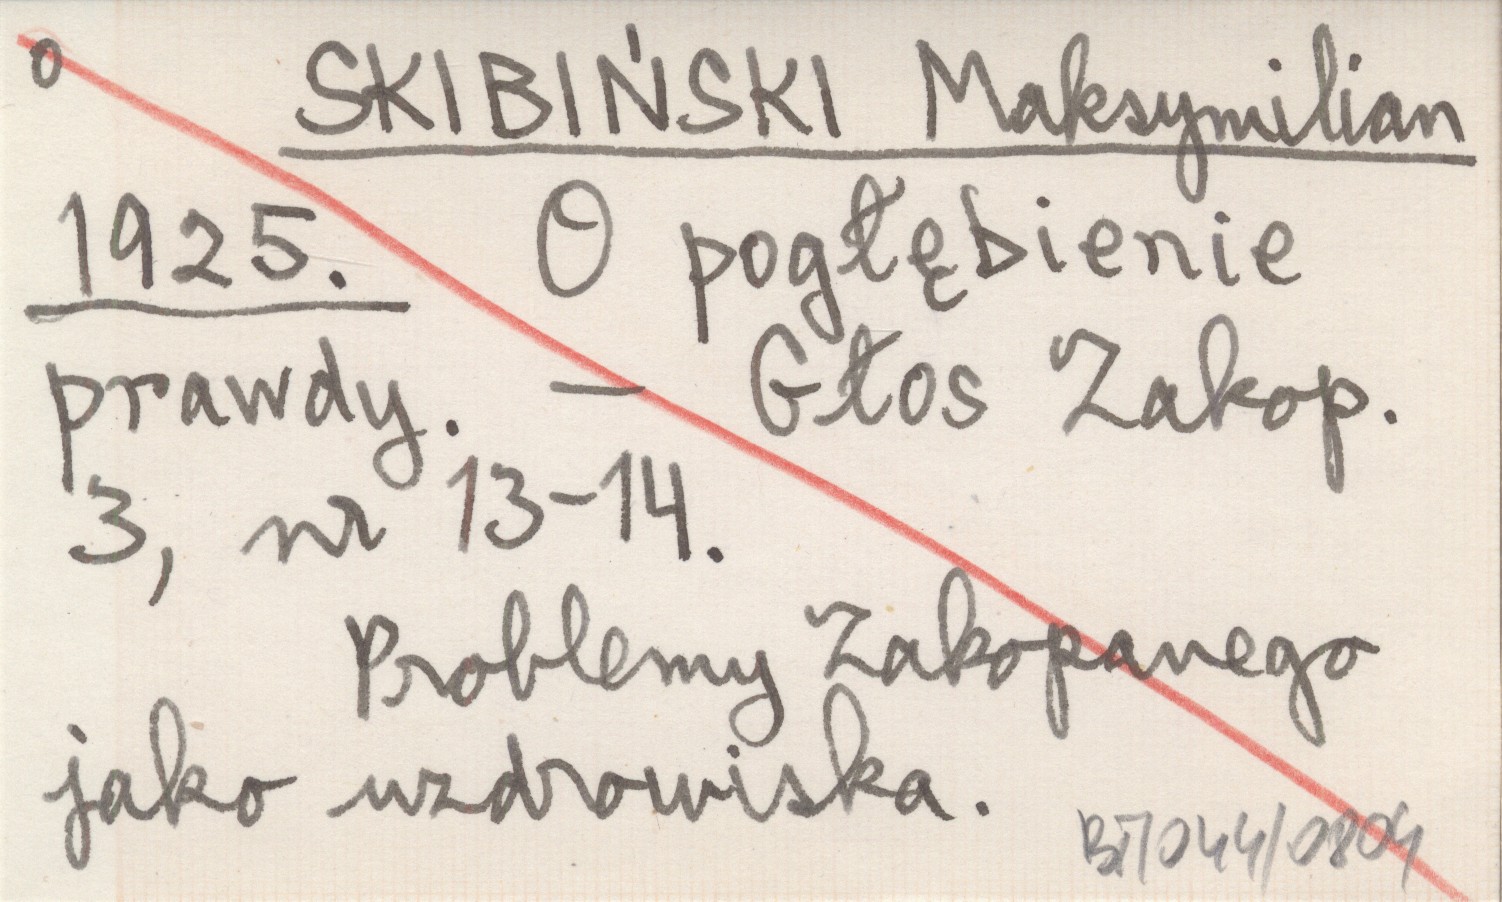 o SKIBIŃSKI Maksymilian
1925. O pogłębienie
prawdy. — Głos Zakop.
3, nr 13-14.
Problemy Zakopanego
jako uzdrowiska.